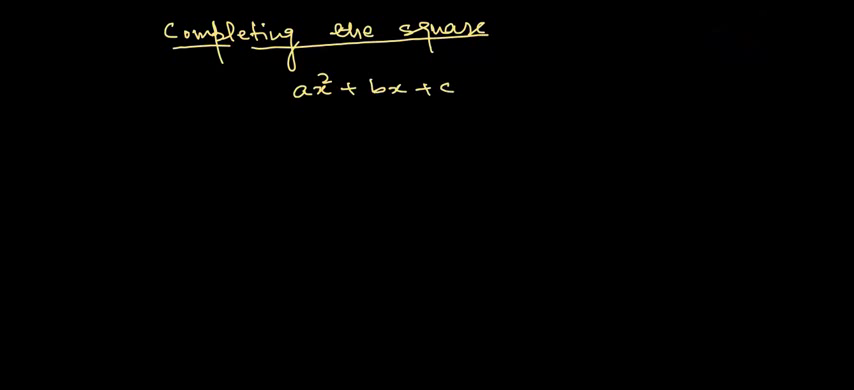 Completing the square
ax² + bx + c